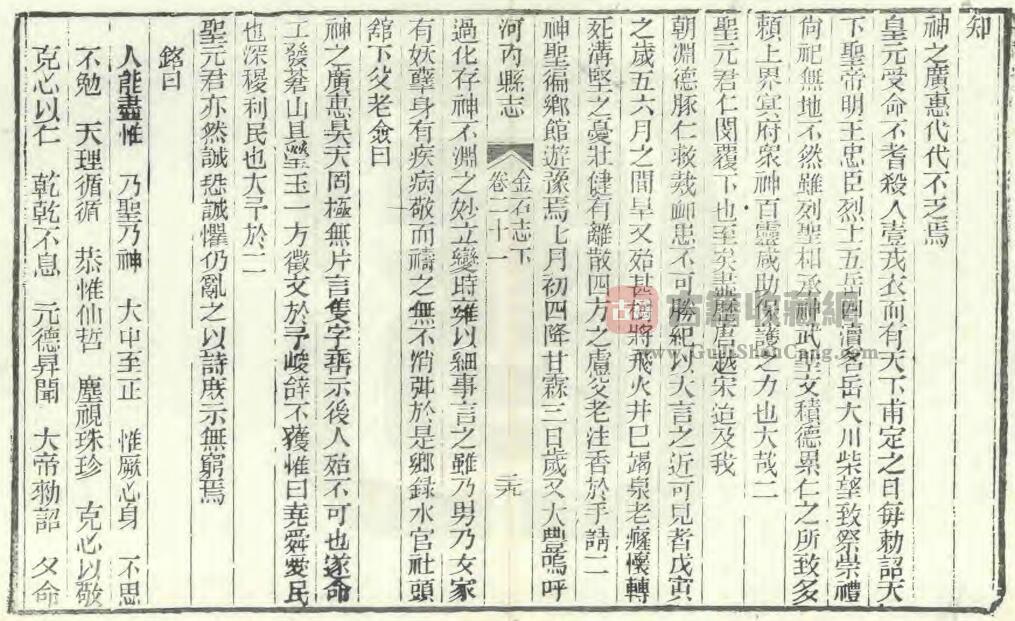 知
神之廣惠代代不乏焉
皇元受命不耆殺人壹戎衣而有天下甫定之日每勅詔天
下聖帝明王忠臣烈士五岳四瀆名岳大川柴望致祭崇禮
尙祀無地不然雖列聖相承神武聖文積德累仁之所致多
頼上界冥府衆神百靈咸助保護之力也大哉二
聖元君仁閔覆下也至矣盡歷唐越宋迨及我
朝淵德豚仁救烖卹患不可勝紀以大言之近可見者戊寅
之歲五六月之間旱又殆甚 將飛火井巳竭泉老癃懷轉
死溝壑之憂壯健有離散四方之慮父老注香於手請二
神聖徧鄉館遊豫焉七月初四降甘霖三日歲又大豊嗚呼
河內縣志
卷二十一 金石志下
元
過化存神不淵之妙立變時雍以細事言之雖乃男乃女家
有妖孽身有疾病敬而禱之無不消弭於是鄉録水官社頭
舘下父老僉曰
神之廣惠昊天罔極無片言隻字垂示後人殆不可也遂命
工發蒼山具瑩玉一方徵文於予峻辞不獲惟曰堯舜愛民
也深稷利民也大予於二
聖元君亦然誠恐誠懼仍亂之以詩庻示無窮焉
銘曰
人能盡惟 乃聖乃神 大中至正 惟厥心身 不思
不勉 天理循循 恭惟仙哲 塵視珠珍 克心以敬
克心以仁 乾乾不息 元德昇聞 大帝勑詔 父命
古籍收藏網
www.GuJiShouCang.com